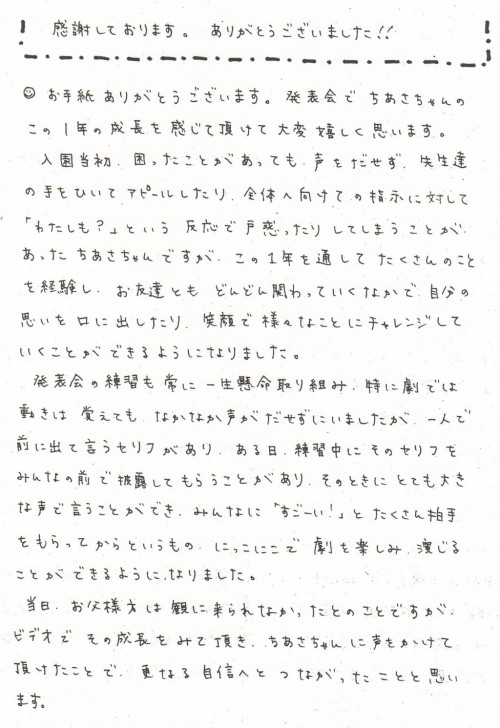 感謝しております。 ありがとうございました!!
お手紙ありがとうございます。発表会でちあさちゃんの
この1年の成長を感じて頂けて大変嬉しく思います。
入園当初、困ったことがあっても、声をだせず、先生達
の手をひいてアピールしたり、全体へ向けての指示に対して
「わたしも?」という反応で戸惑ったりしてしまうことが、
あったちあさちゃんですが、この1年を通してたくさんのこと
を経験し、お友達ともどんどん関わっていくなかで、自分の
思いを口に出したり、笑顔で様々なことにチャレンジして
いくことができるようになりました。
発表会の練習も常に一生懸命取り組み、特に劇では
動きは覚えても、なかなか声がだせずにいましたが、一人で
前に出て言うセリフがあり、ある日、練習中にそのセリフを
みんなの前で披露してもらうことがあり、そのときにとても大き
な声で言うことができ、みんなに「すごーい!」とたくさん拍手
をもらってからというもの、にっこにこで劇を楽しみ、演じる
ことができるようになりました。
当日、お父様方は観に来られなかったとのことですが、
ビデオでその成長をみて頂き、ちあさちゃんに声をかけて
頂けたことで、更なる自信へとつながったことと思い
ます。